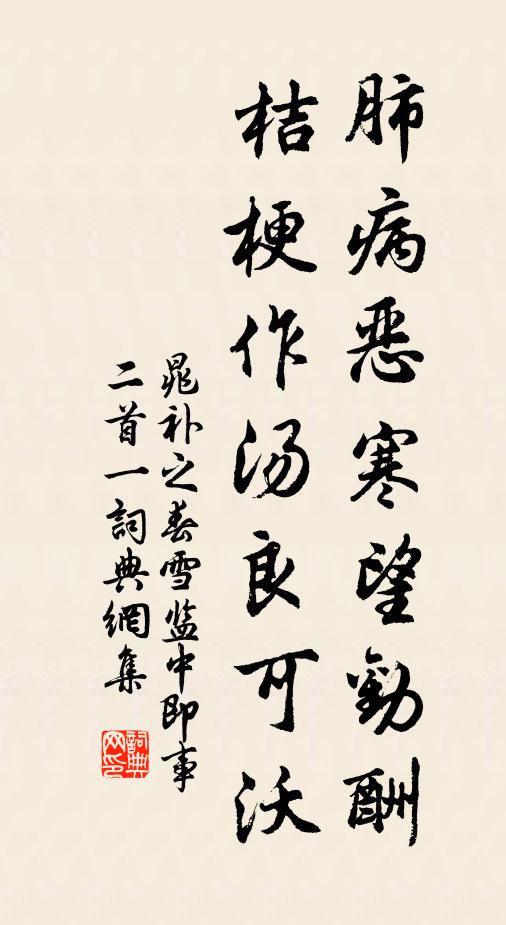 肺病恶寒望勸酬
桔梗作汤良可沃
晁补之春雪监中即事
二首一詞典網集
詞典网印